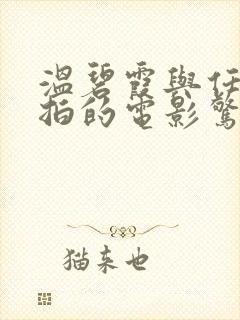 溫碧霞與任
拍的電影驚
猫来也